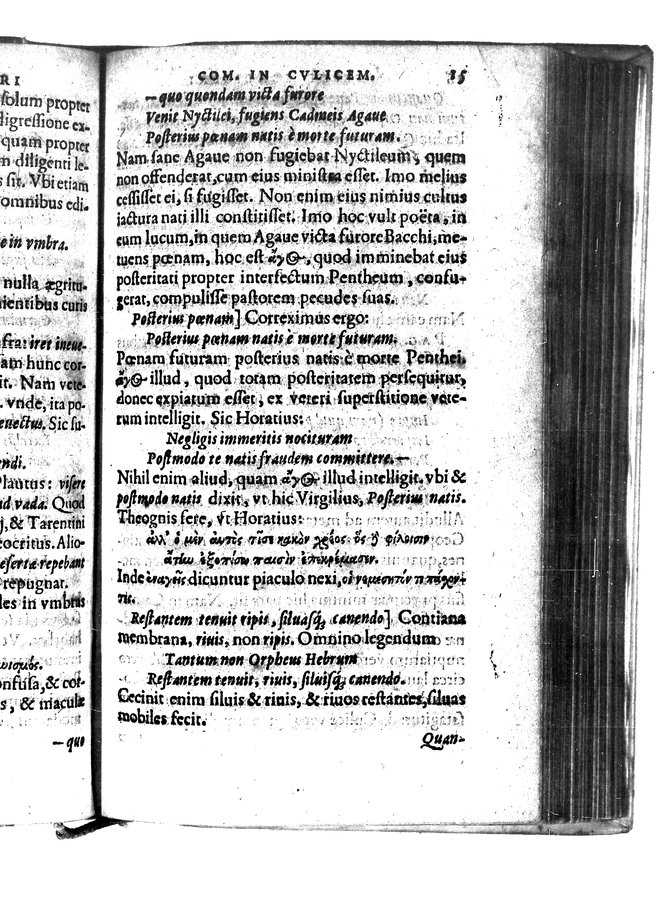 RI
solum propter
digressione ex-
quam propter
m diligenti le-
s sit. Vbi etiam
omnibus edi-
te in vmbra.
nulla ægritu-
nientibus curis
iret ineue-
am hunc cor-
it. Nam vete-
. vnde, ita po-
enectus. Sic su-
ndi.
Plautus: visere
ad vada. Quod
j, & Tarentini
eocritus. Alio-
deserta repebant
repugnat.
les in vmbras
onfusa, & cor-
s, & maculæ
—quo
COM. IN CVLICEM. 15
—quo quondam victa furore
Venit Nyctilei, fugiens Cadmeis Agaue
Posterius pœnam natis è morte futuram.
Nam sane Agaue non fugiebat Nyctileum, quem
non offenderat, cum eius ministra esset. Imo melius
cessisset ei, si fugisset. Non enim eius nimius cultus
iactura nati illi constitisset. Imo hoc vult poëta, in
eum lucum, in quem Agaue victa furore Bacchi, me-
tuens pœnam, hoc est ἄγος, quod imminebat eius
posteritati propter interfectum Pentheum, confu-
gerat, compulisse pastorem pecudes suas.
Posterius pœnam] Correximus ergo:
Posterius pœnam natis è morte futuram.
Pœnam futuram posterius natis è morte Penthei.
ἄγος illud, quod totam posteritatem persequitur,
donec expiatum esset, ex veteri superstitione vete-
rum intelligit. Sic Horatius:
Negligis immeritis nocituram
Postmodo te natis fraudem committere.—
Nihil enim aliud, quam ἄγος illud intelligit. vbi &
postmodo natis dixit, vt hic Virgilius, Posterius natis.
Theognis fere, vt Horatius:
ἀλλ' ὁ μὲν αὐτὸς τῖσε κακὸν χρέος· ὃς δ' φίλοισιν
ἄτην ἐξοπίσω παισὶν ἐπικρέμασεν.
Inde ἐναγεῖς dicuntur piaculo nexi,
Restantem tenuit ripis, siluasq́; canendo] Contiana
membrana, riuis, non ripis. Omnino legendum
Tantum non Orpheus Hebrum
Restantem tenuit, riuis, siluisq́; canendo.
Cecinit enim siluis & riuis, & riuos restantes, siluas
mobiles fecit.
Quan-